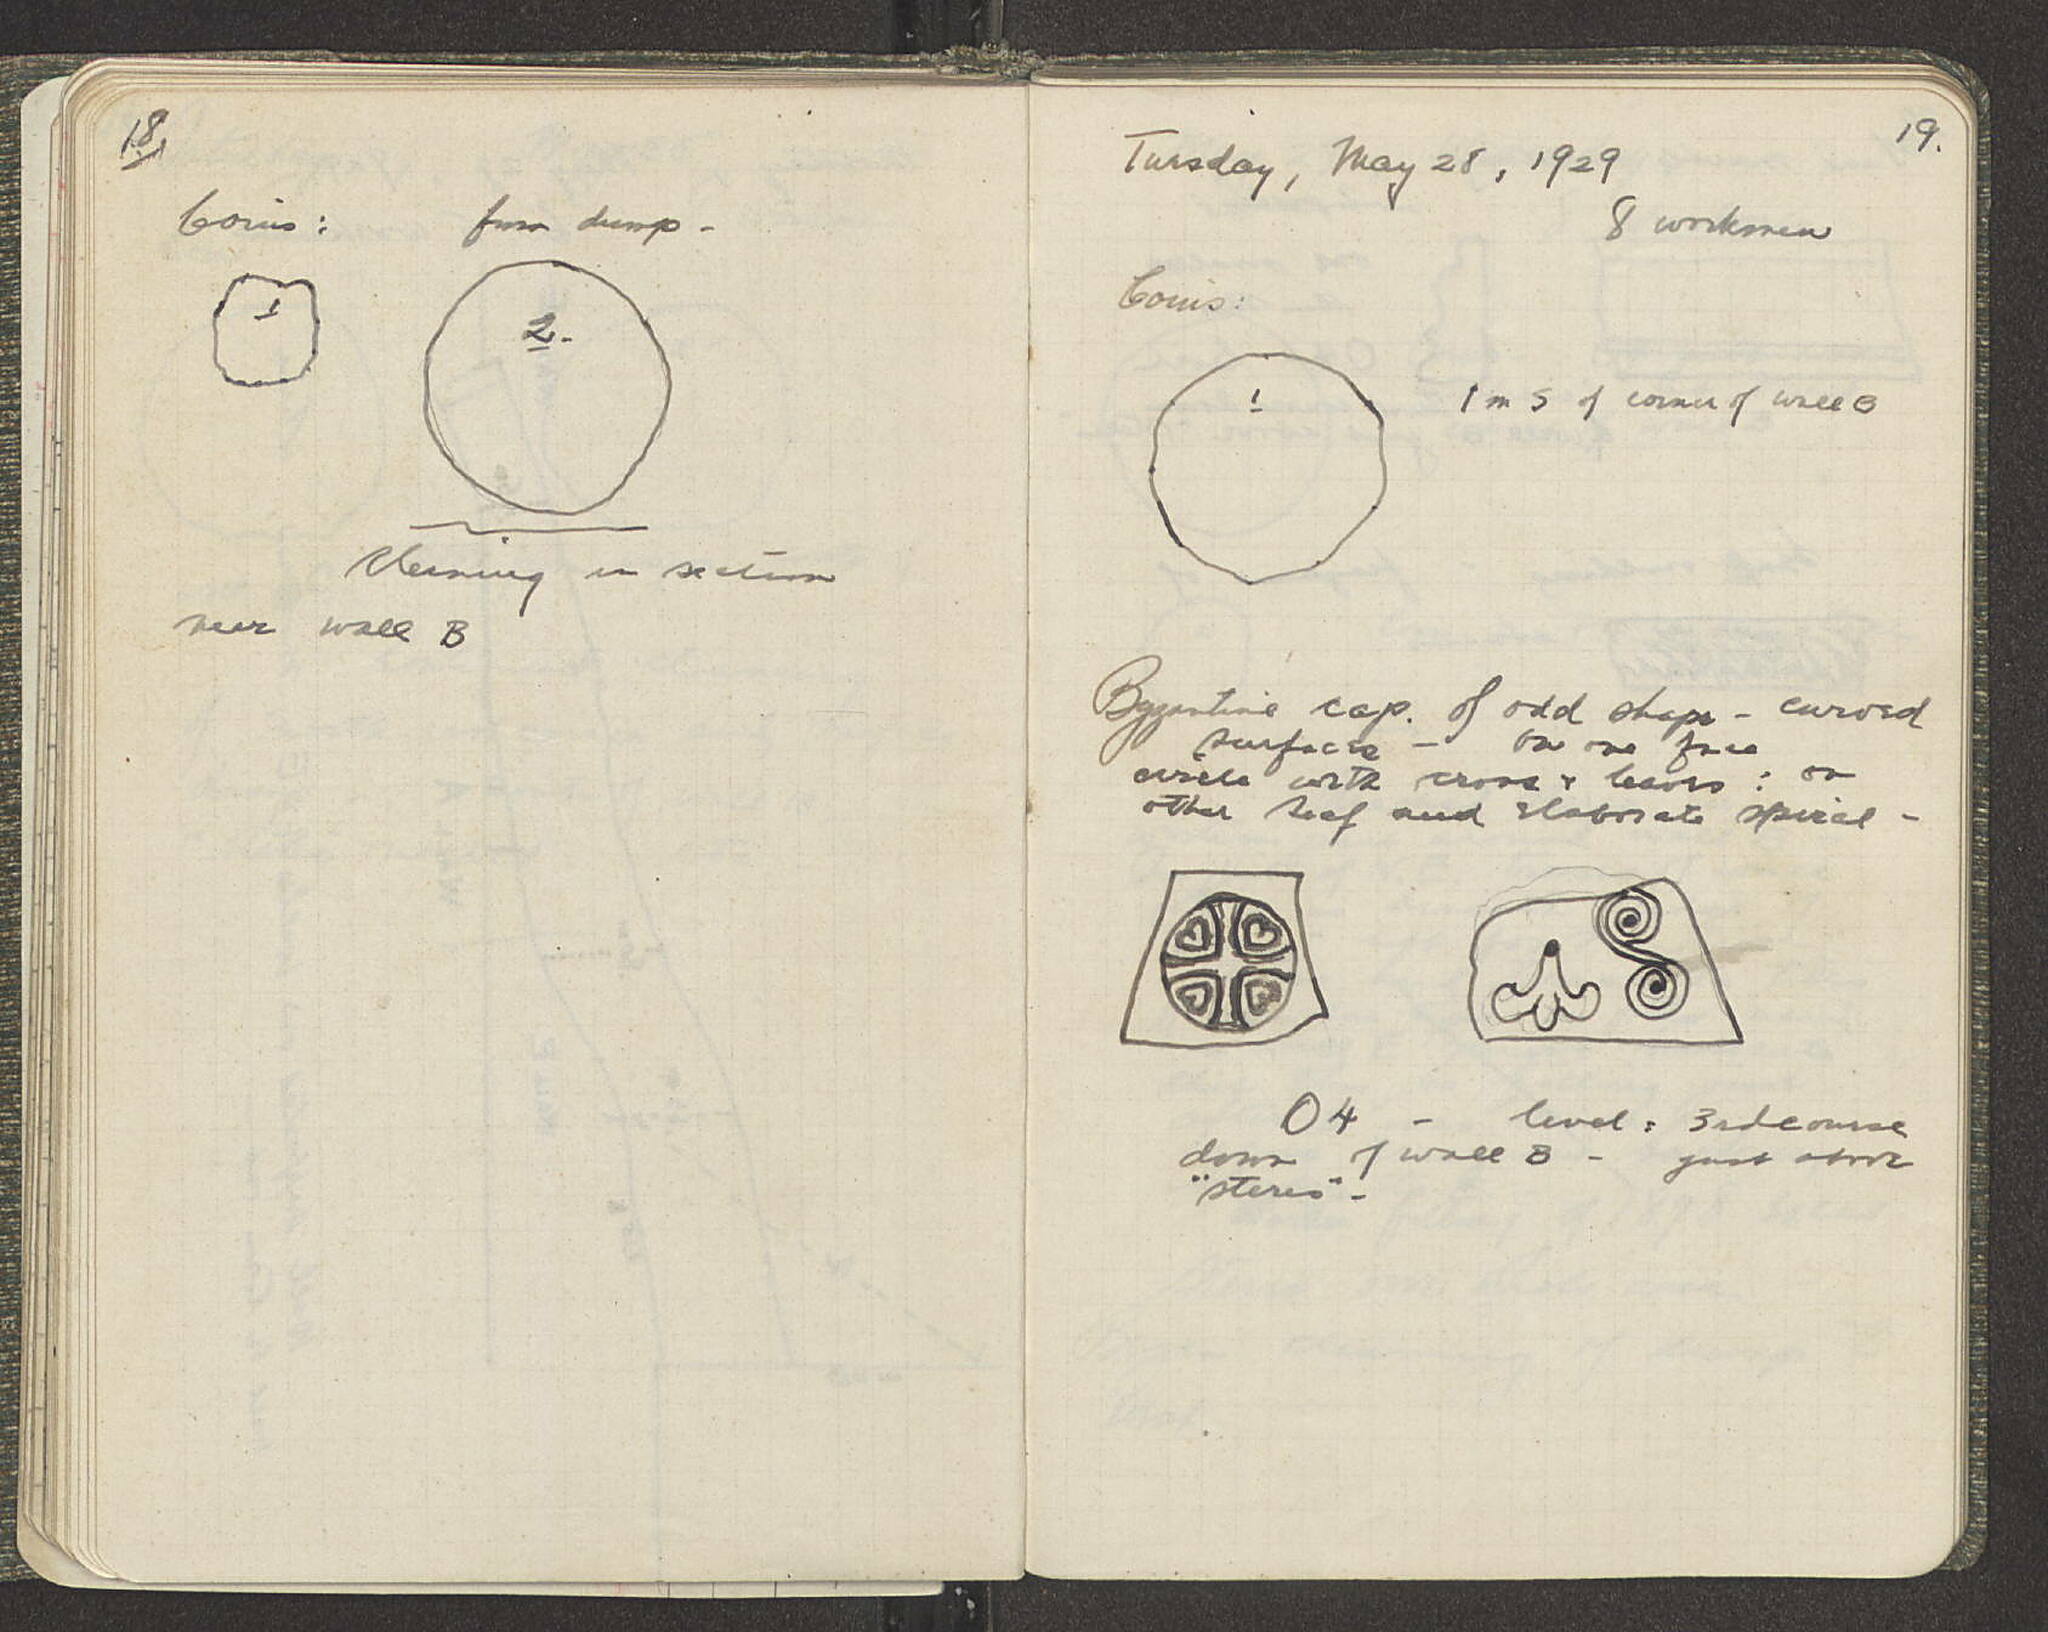 18.
Coins: from dump -
1
2.
Cleaning in section
near wall B
19.
Tuesday, May 28, 1929
8 workmen
Coins:
1
1 m S of corner of wall B
Byzantine cap. of odd shape - curved
surfaces - on one face
circle with cross & leaves : on
other leaf and elaborate spiral -
O4 - level : 3rd course
down of wall B - just above
"steres" -